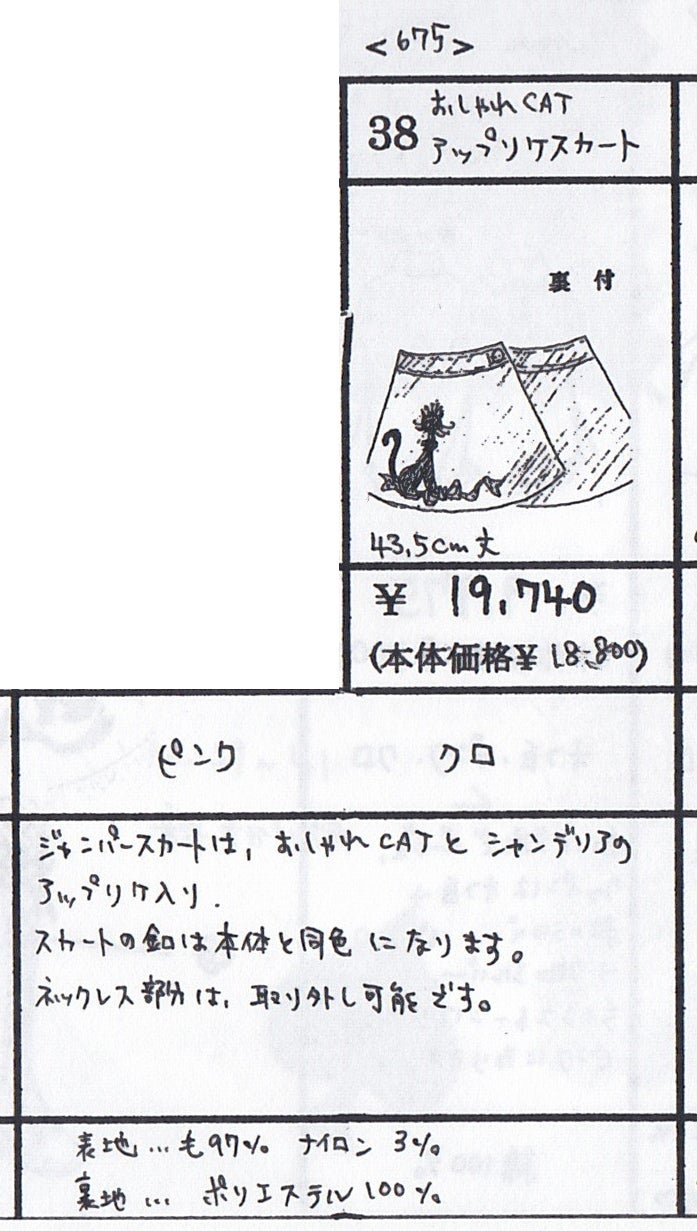 <675>
38 おしゃれCAT
アップリケスカート
裏 付
43.5cm丈
¥ 19,740
(本体価格¥ 18,800)
ピンク クロ
ジャンパースカートは、おしゃれCATと シャンデリアの
アップリケ入り.
スカートの釦は本体と同色 になります。
ネックレス部分は、取り外し可能です。
表地…毛97% ナイロン 3%
裏地… ポリエステル100%